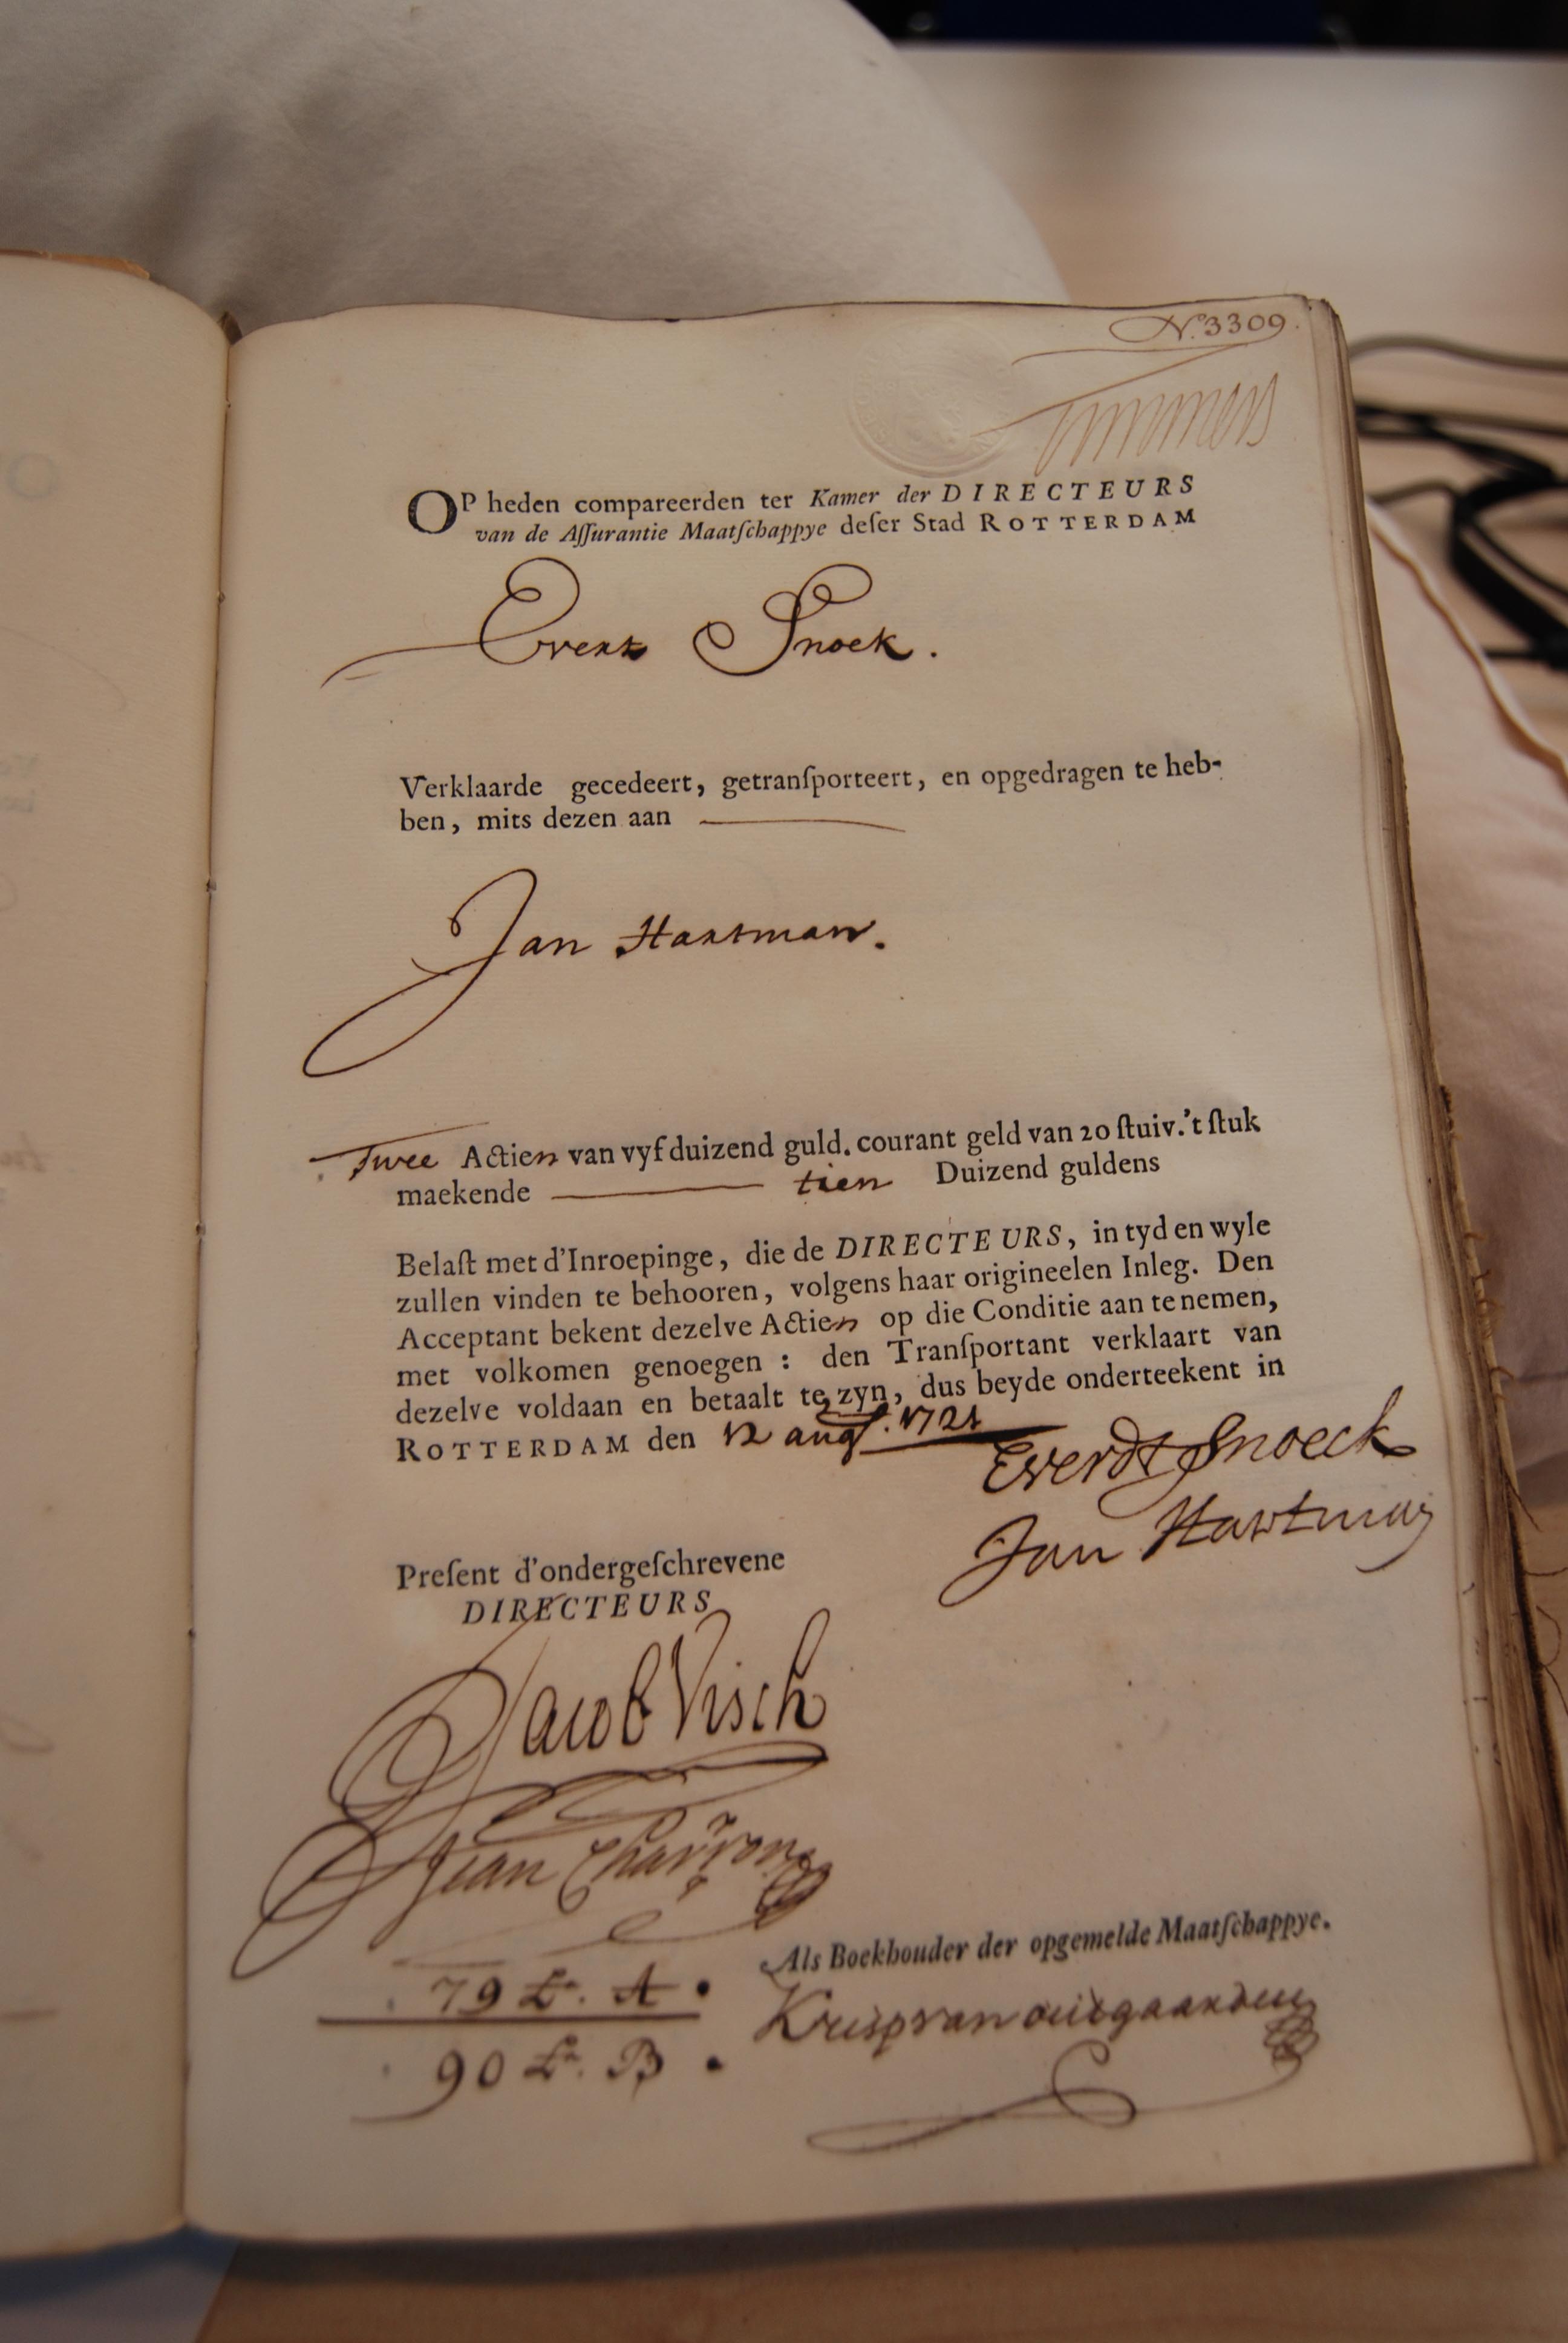 N.o 3309.
Timmers
OP heden compareerden ter Kamer der DIRECTEURS
van de Aſſurantie Maatſchappye deſer Stad ROTTERDAM
Evert Snoek.
Verklaarde gecedeert, getranſporteert, en opgedragen te heb-
ben, mits dezen aan
Jan Hartman.
Twee Actien van vyf duizend guld. courant geld van 20 ſtuiv. 't ſtuk
maekende tien Duizend guldens
Belaſt met d'Inroepinge, die de DIRECTEURS, in tyd en wyle
zullen vinden te behooren, volgens haar origineelen Inleg. Den
Acceptant bekent dezelve Actien op die Conditie aan te nemen,
met volkomen genoegen : den Tranſportant verklaart van
dezelve voldaan en betaalt te zyn, dus beyde onderteekent in
ROTTERDAM den 12 aug. 1721
Everdt Snoeck
Jan Hartman
Preſent d'ondergeſchrevene
DIRECTEURS
Jacob Visch
Jean Charron
Als Boekhouder der opgemelde Maatſchappye.
79 Lr. A.
90 Lr. B.